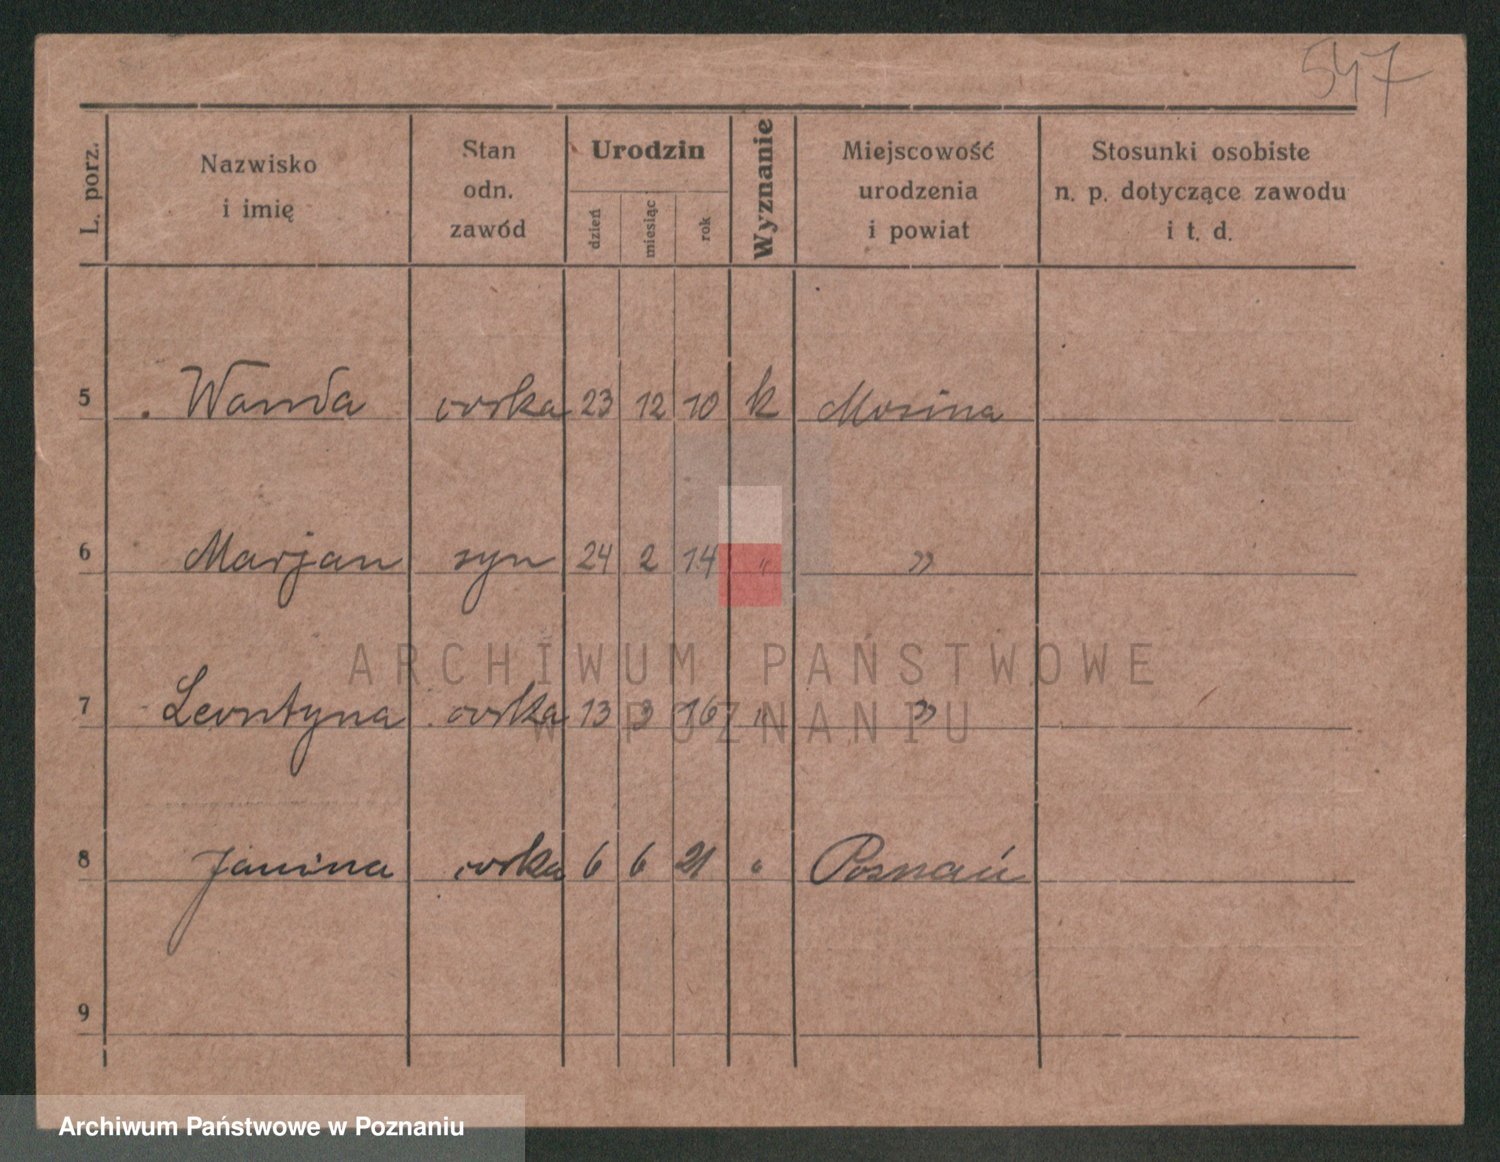 547
L. porz.
Nazwisko
i imię
Stan
odn.
zawód
Urodzin
dzień
miesiąc
rok
Wyznanie
Miejscowość
urodzenia
i powiat
Stosunki osobiste
n. p. dotyczące zawodu
i t. d.
5 Wanda córka 23 12 10 k Mosina
6 Marjan syn 24 2 14 " "
7 Leontyna córka 13 3 16 " "
8 Janina córka 6 6 21 " Poznań
9
ARCHIWUM PAŃSTWOWE
W POZNANIU
Archiwum Państwowe w Poznaniu